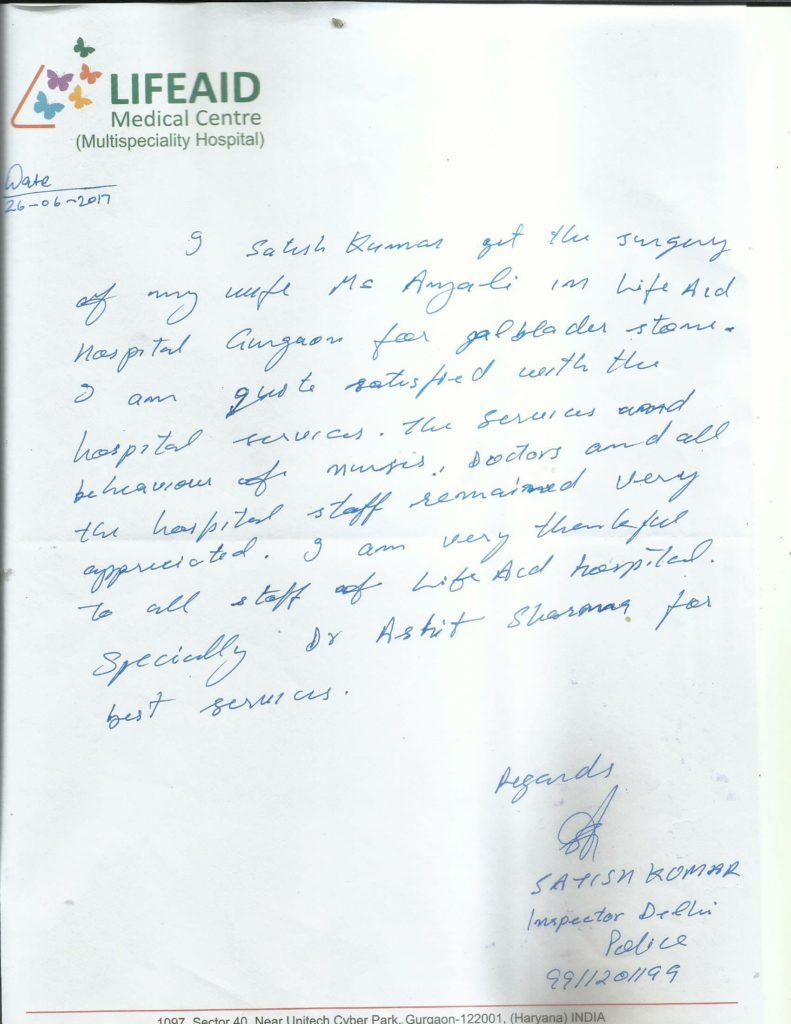 LIFEAID
Medical Centre
(Multispeciality Hospital)
Date
26-06-2017
I Satish Kumar get the surgery
of my wife Ms Anjali in Life Aid
Hospital Gurgaon for galblader stone.
I am quite satisfied with the
hospital services. The services and
behaviour of nurses, Doctors and all
the hospital staff remained very
appreciated. I am very thankful
to all staff of Life Aid Hospital.
Specially Dr Ashit Sharma for
best services.
Regards
SATISH KUMAR
Inspector Delhi
Police
9911201199
1097, Sector 40, Near Unitech Cyber Park, Gurgaon-122001, (Haryana) INDIA